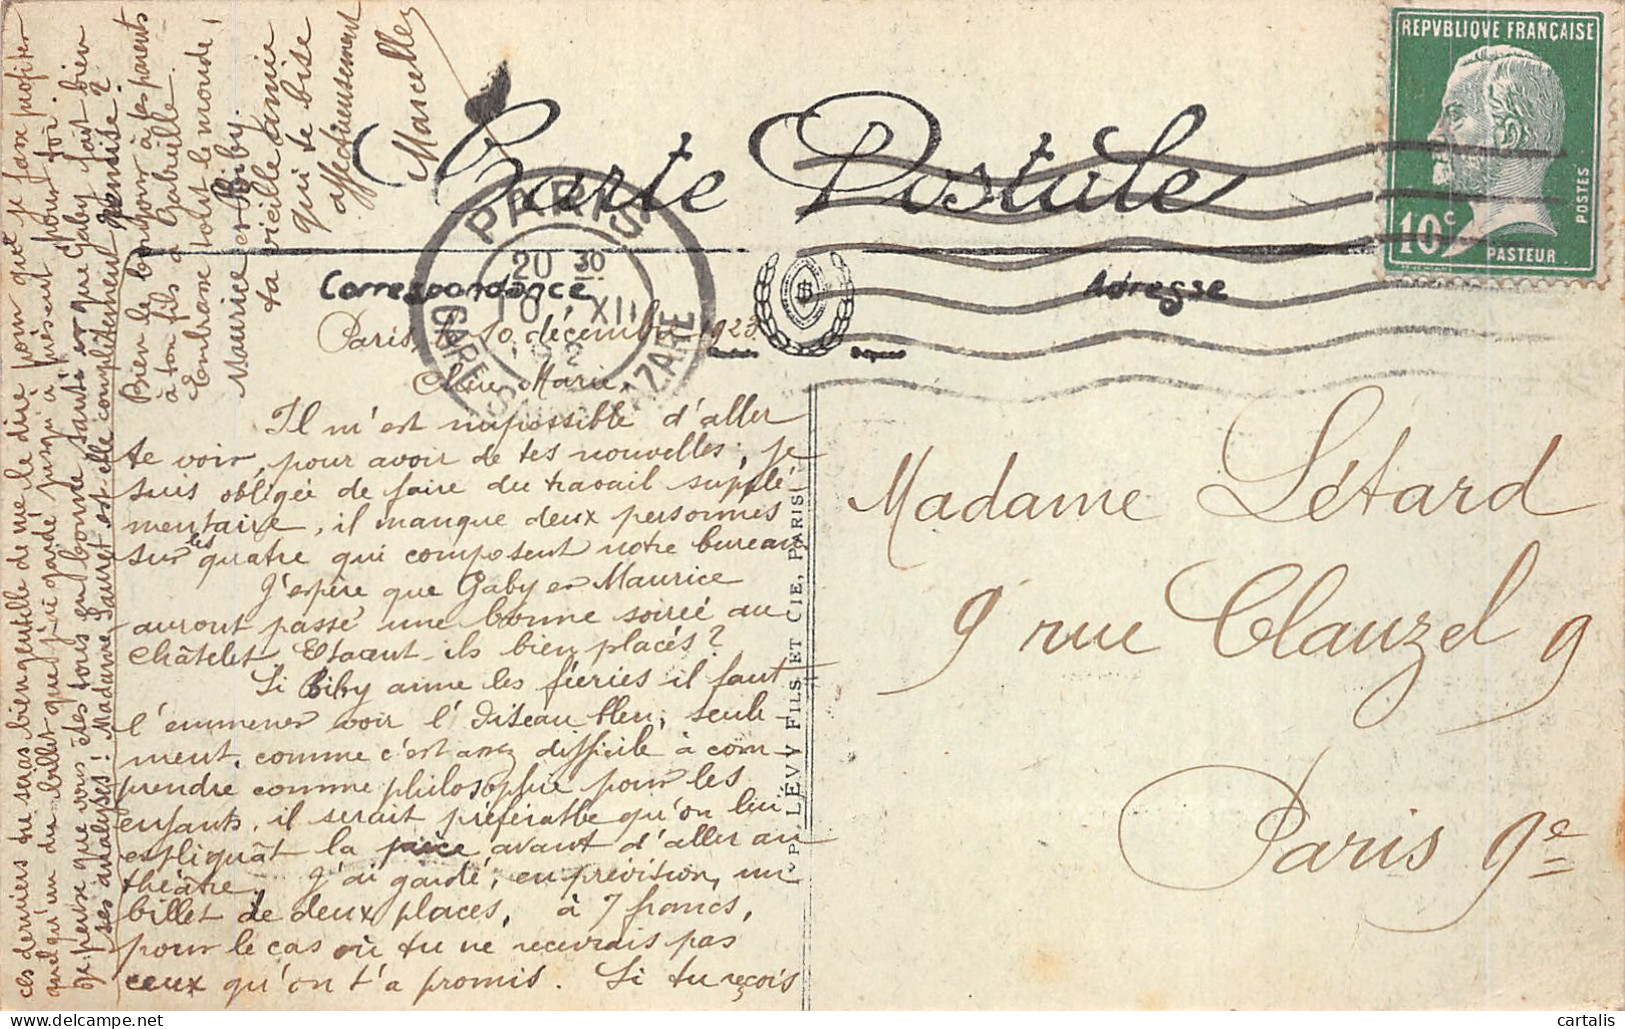 REPVBLIQVE FRANÇAISE
10c
POSTES
PASTEUR
Carte Postale
PARIS
20 30
10 XII
GARE ST LAZARE
Correspondance
Adresse
Paris, le 10 décembre 1923
Chère Marie,
Il m'est impossible d'aller
te voir, pour avoir de tes nouvelles, je
suis obligée de faire du travail supplé
mentaire, il manque deux personnes
sur les quatre qui composent notre bureau
J'espère que Gaby et Maurice
auront passé une bonne soirée au
châtelet Etaient-ils bien placés?
Si Biby aime les féeries il faut
l'emmener voir l'Oiseau bleu, seule-
ment, comme c'est assez difficile à com-
prendre comme philosophie pour les
enfants, il serait préférable qu'on lui
expliquât la pièce avant d'aller au
théâtre. J'ai gardé, en prévision, un
billet de deux places, à 7 francs,
pour le cas où tu ne recevrais pas
ceux qu'on t'a promis. Si tu reçois
ces derniers tu seras bien gentille de me le dire pour que je fasse profiter
quelqu'un du billet que j'ai gardé jusqu'à présent pour toi.
Je pense que vous êtes tous en bonne santé et que Gaby fait bien
ses analyses! Madame Lauret est-elle complètement remise?
Bien le bonjour à tes parents
à ton fils à Gabrielle
Embrasse tout le monde,
Maurice et Biby.
ta vieille amie
qui te bise
affectueusement
Marcelle
LÉVY FILS ET CIE, PARIS
Madame Létard
9 rue Clauzel 9
Paris 9e
cartalis